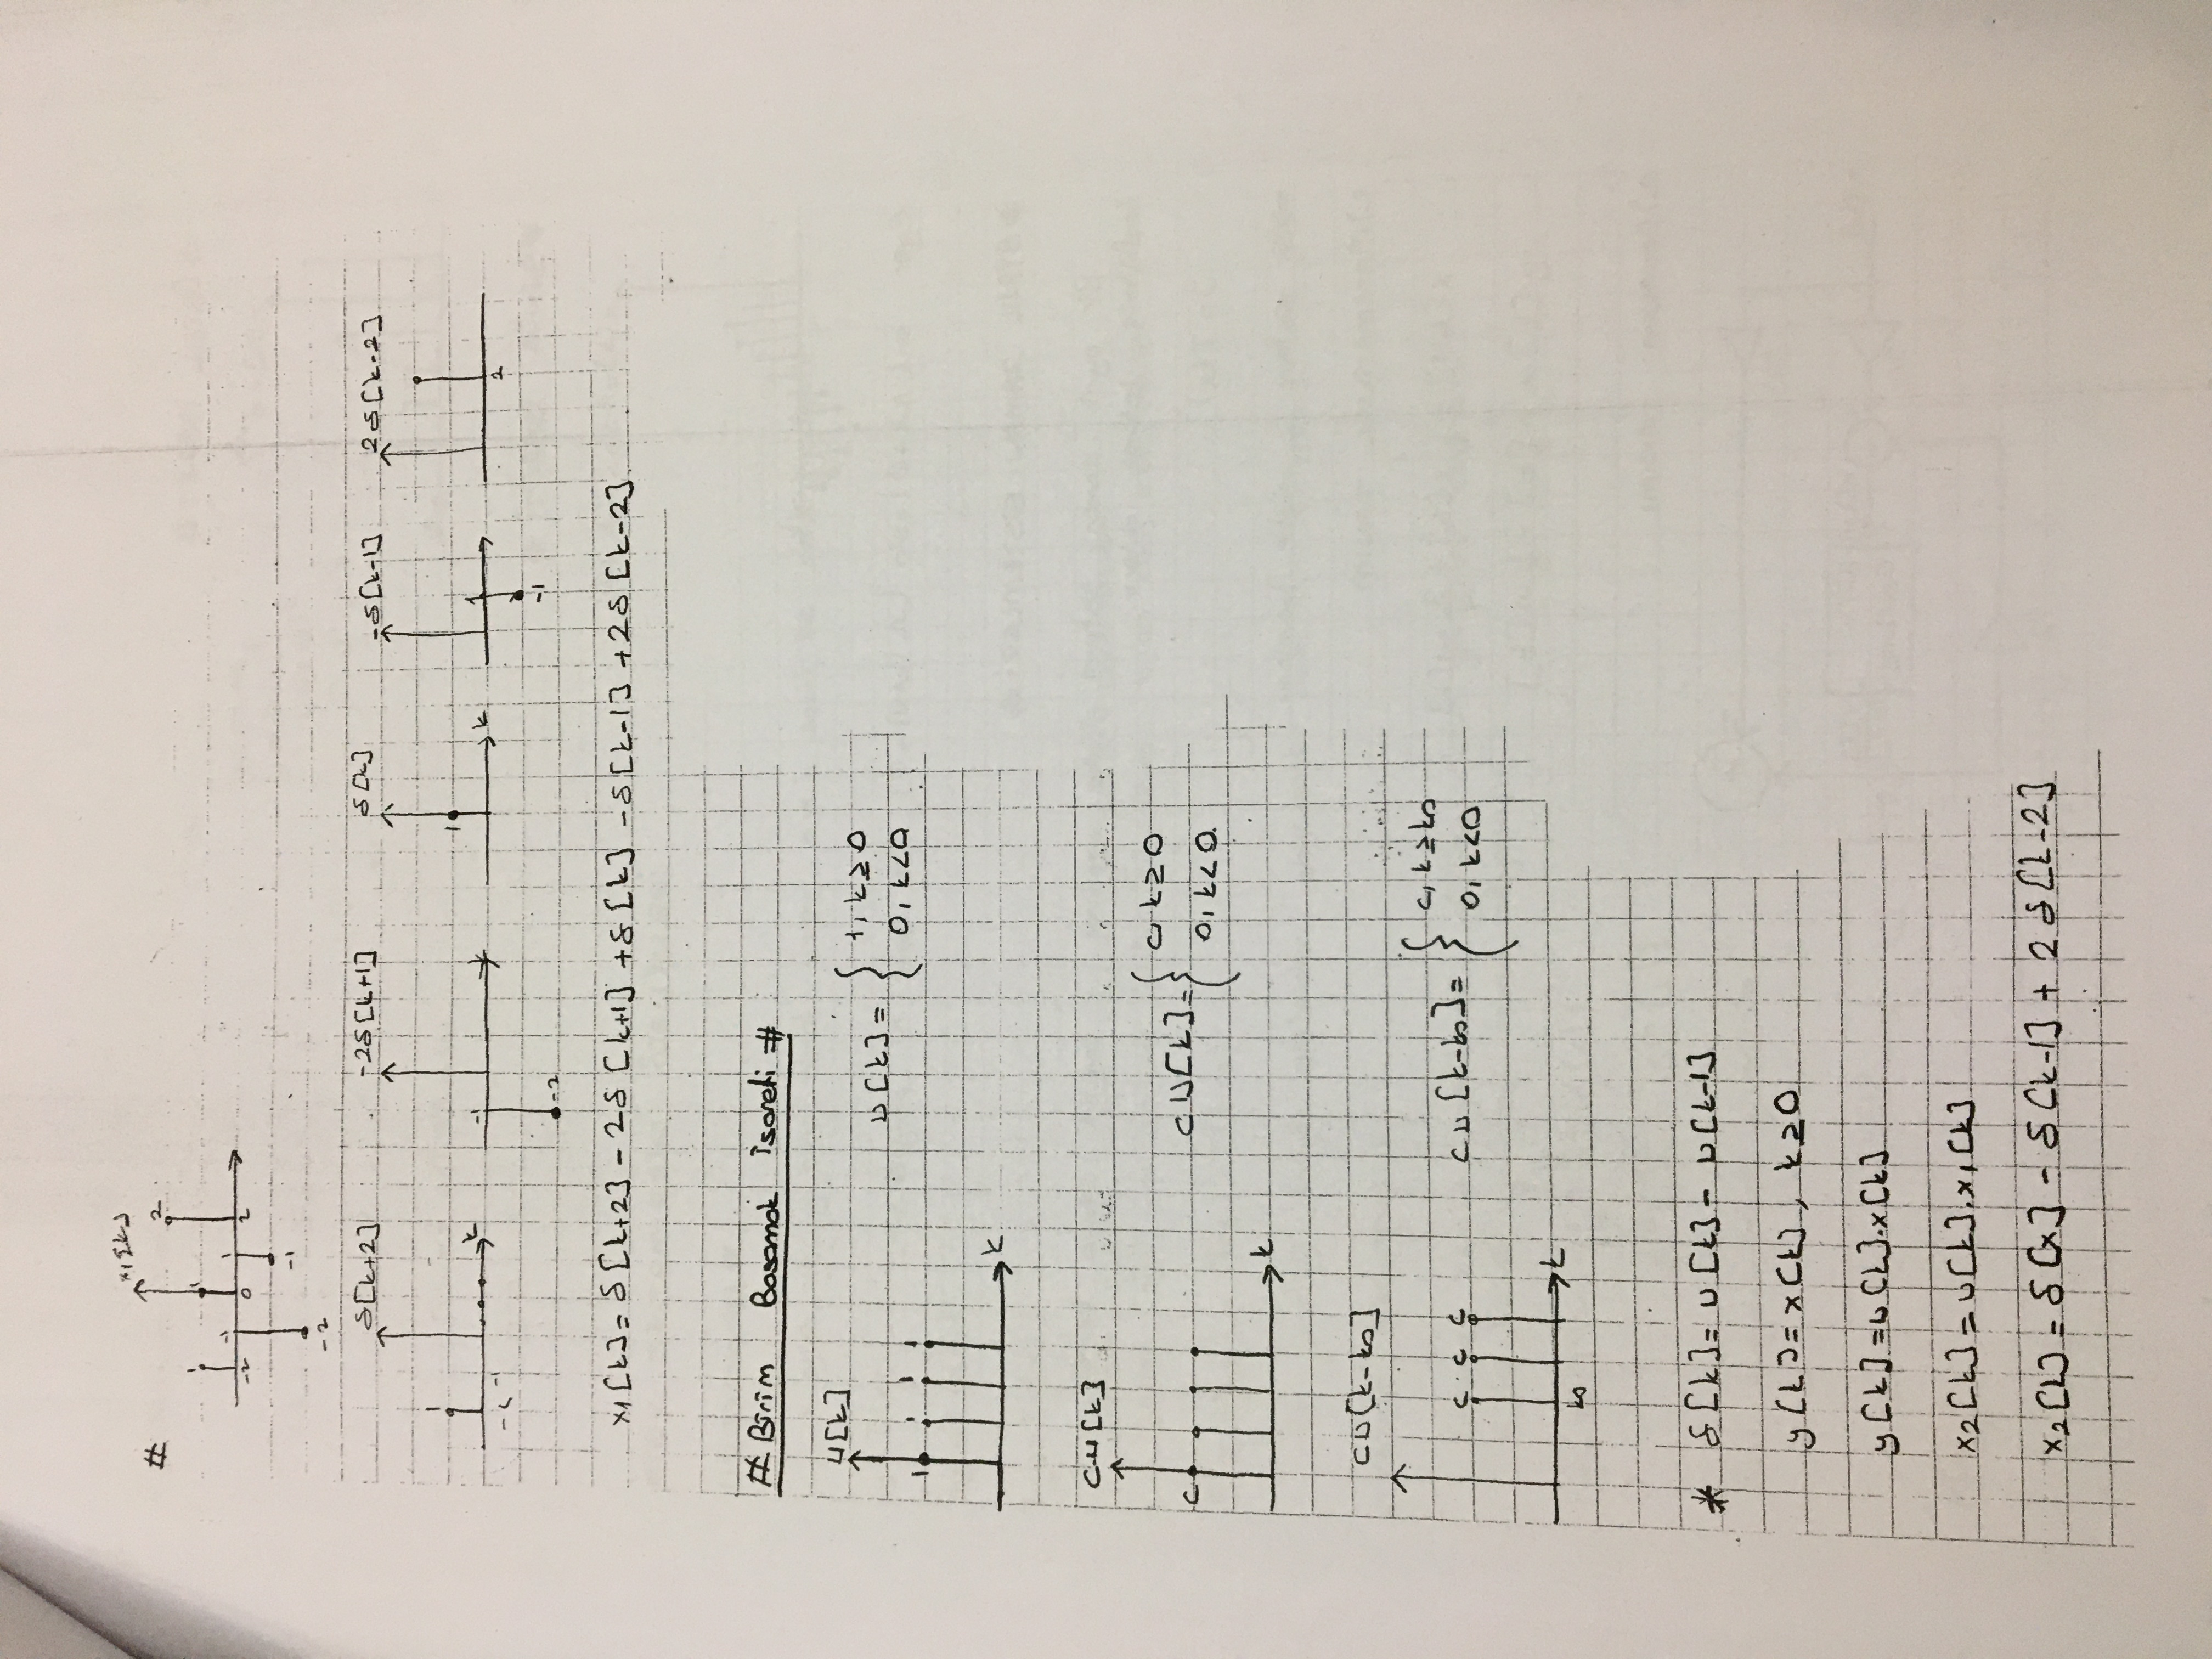 #
x₁[k]
1 -1 1 1 2
-2 0 2
-1
-2
δ[k+2] -2δ[k+1] δ[k] -δ[k-1] 2δ[k-2]
1 k -1 1 k 1
-1 2
-2 -1
x₁[k]= δ[k+2] - 2δ[k+1] + δ[k] - δ[k-1] + 2δ[k-2]
# Birim Basamak isareti #
u[k]
u[k]= { 1, k≥0
0, k<0
1 1 1 1
k
c.u[k]
c u[k]= { c, k≥0
0, k<0
c
k
c u[k-k₀]
c u[k-k₀]= { c, k≥k₀
0, k<0
c c c
k
k₀
* δ[k]= u[k] - u[k-1]
y[k]= x[k], k≥0
y[k]=u[k].x[k]
x₂[k]=u[k].x₁[k]
x₂[k]= δ[x] - δ[k-1] + 2δ[k-2]